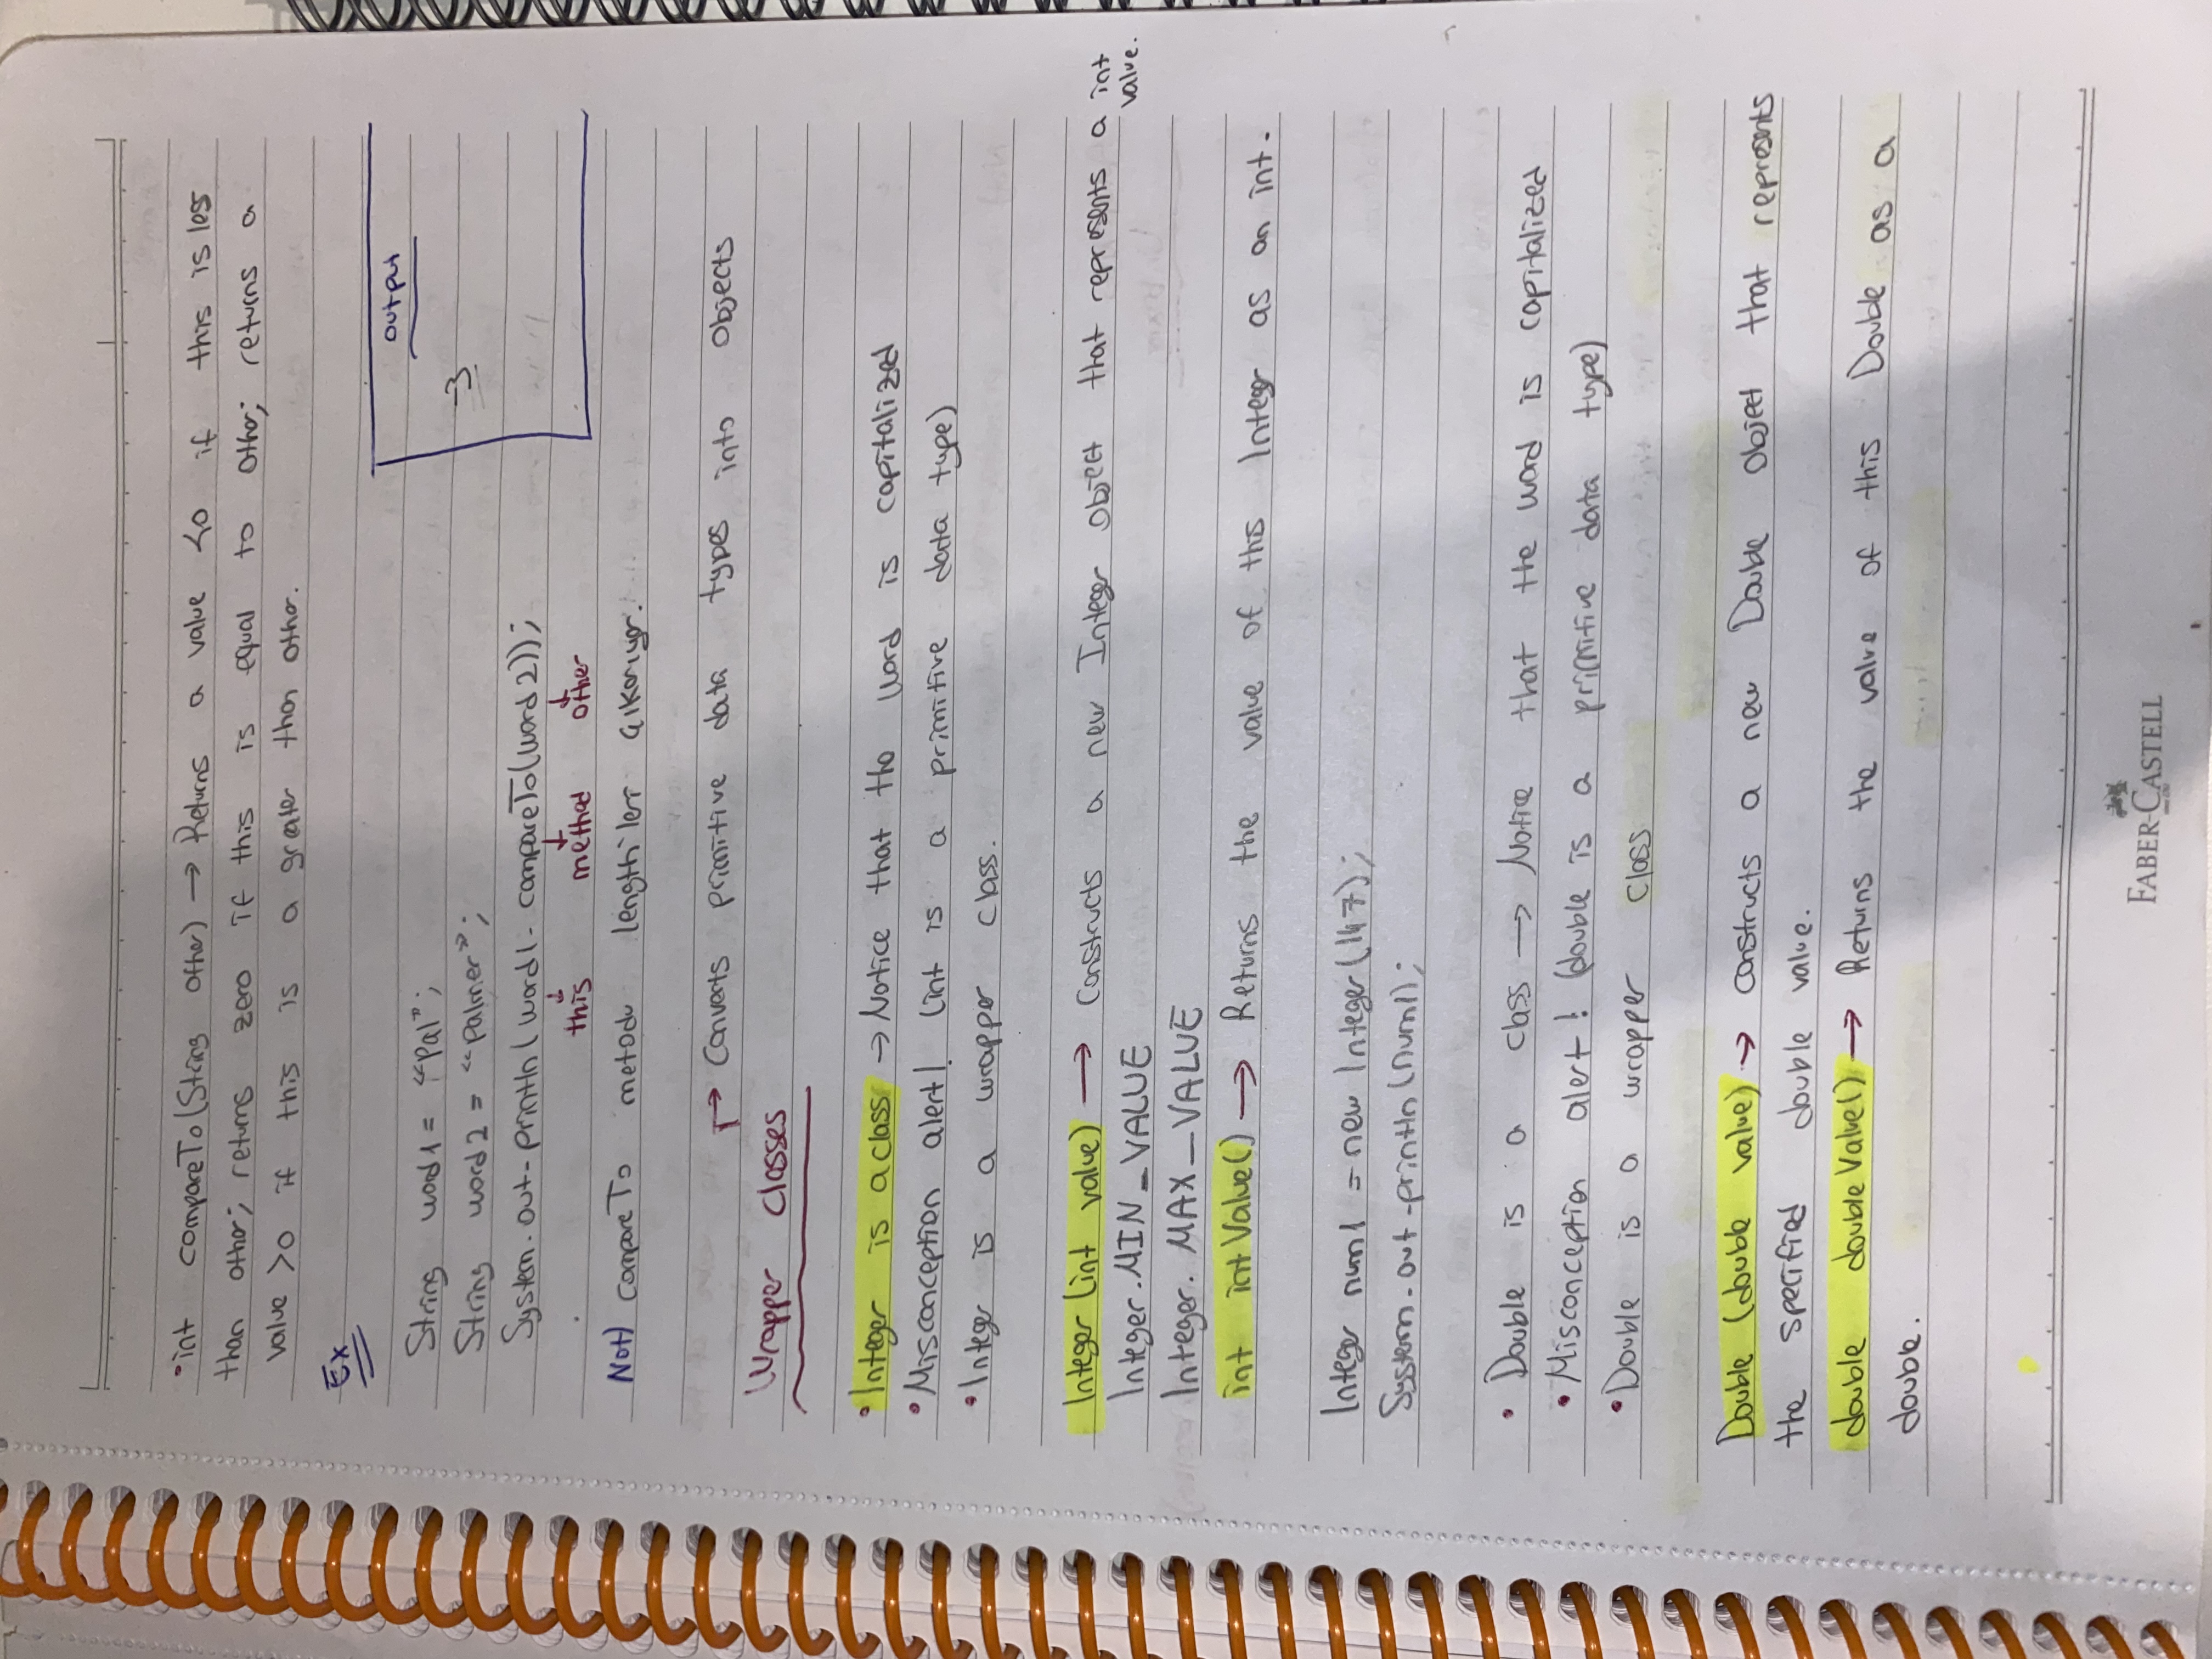 •int compareTo(String other) → Returns a value <0 if this is less
than other; returns zero if this is equal to other; returns a
value >0 if this is a greater than other.
Ex
output
String word1 = "Pal";
String word2 = "Palmer";
-3
System.out.println(word1.compareTo(word2));
this method other
Not) compareTo metodu length'leri çıkarıyor.
→ Converts primitive data types into objects
Wrapper Classes
•Integer is a class → Notice that the word is capitalized
•Misconception alert! (int is a primitive data type)
•Integer is a wrapper class.
Integer (int value) → Constructs a new Integer object that represents a int
value.
Integer.MIN_VALUE
Integer.MAX_VALUE
int intValue() → Returns the value of this Integer as an int.
Integer num1 = new Integer(147);
System.out.println(num1);
• Double is a class → Notice that the word is capitalized
• Misconception alert! (double is a primitive data type)
•Double is a wrapper class
Double (double value) → constructs a new Double object that represents
the specified double value.
double doubleValue() → Returns the value of this Double as a
double.
FABER-CASTELL